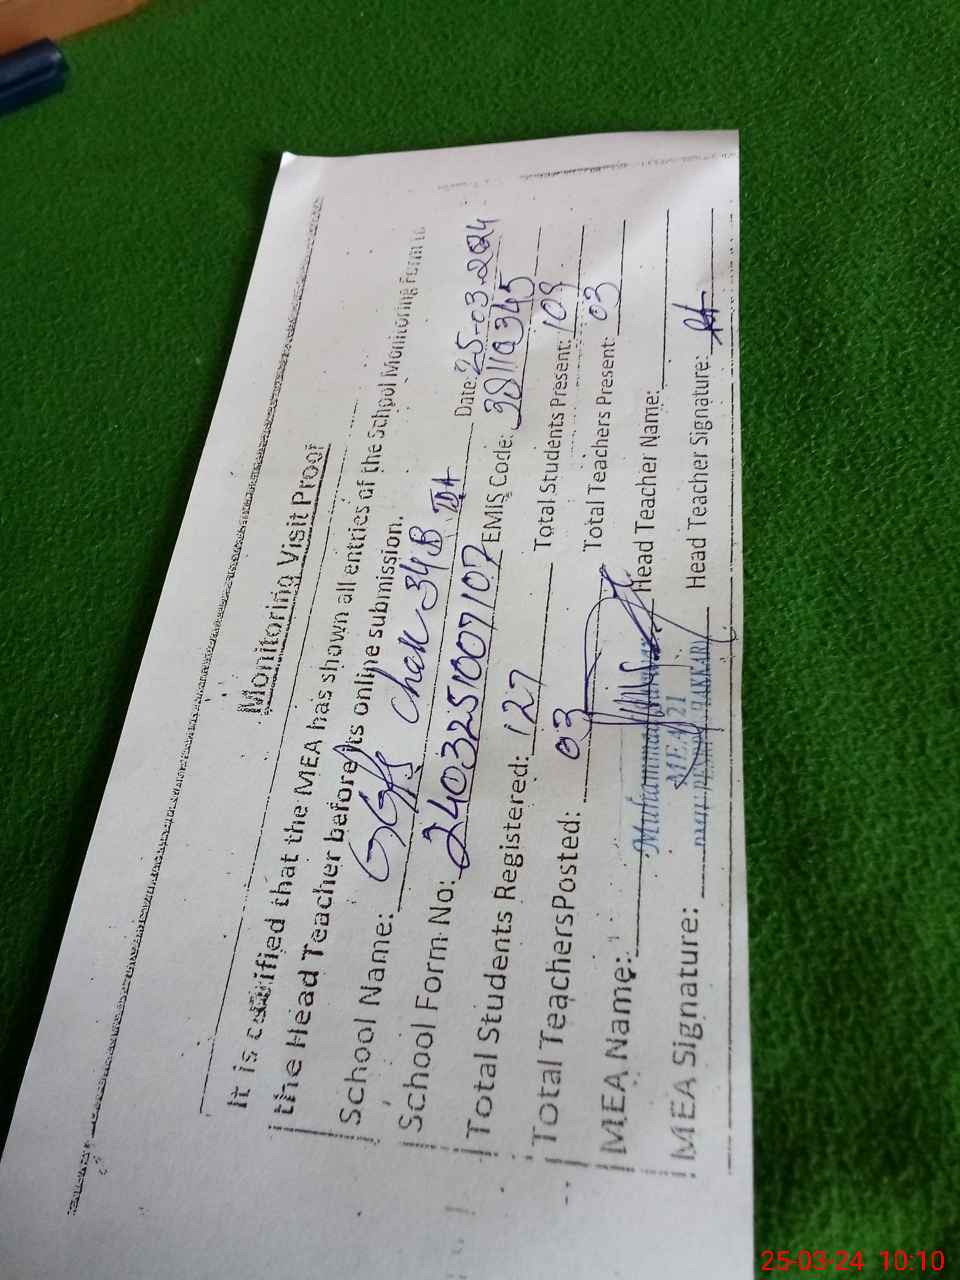 Monitoring Visit Proof
It is certified that the MEA has shown all entries of the School Monitoring Form to
the Head Teacher before its online submission.
School Name: GGPS Chak 34B TDA Date: 25-03-2024
School Form No: 2403251007107 EMIS Code: 38110345
Total Students Registered: 127 Total Students Present: 108
Total TeachersPosted: 03 Total Teachers Present: 03
MEA Name: Muhammad Head Teacher Name:
MEA 21
MEA Signature: Head Teacher Signature:
25-03-24 10:10